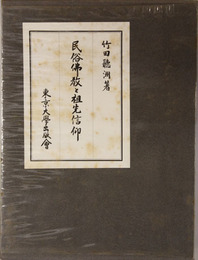 竹田聴洲著
民俗佛教と祖先信仰
東京大學出版會